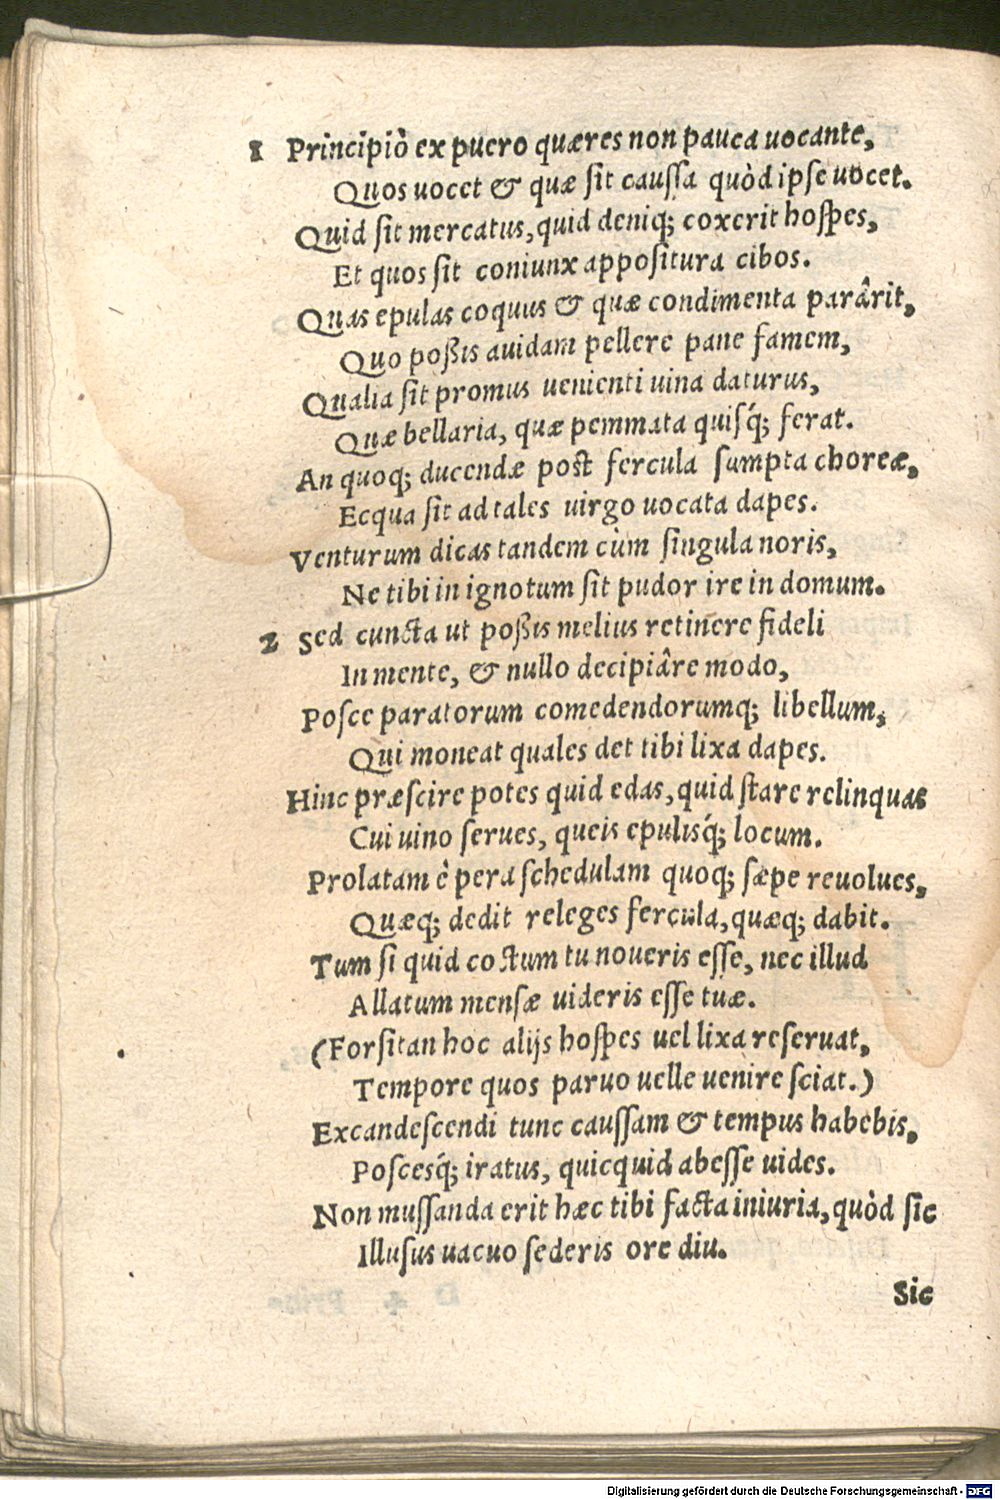 1 Principiò ex puero quæres non pauca uocante,
Quos uocet & quæ sit caussa quòd ipse uocet.
Quid sit mercatus, quid deniq; coxerit hospes,
Et quos sit coniunx appositura cibos.
Quas epulas coquus & quæ condimenta parârit,
Quo poßis auidam pellere pane famem,
Qualia sit promus uenienti uina daturus,
Quæ bellaria, quæ pemmata quisq́; ferat.
An quoq; ducendæ post fercula sumpta choreæ,
Ecqua sit ad tales uirgo uocata dapes.
Venturum dicas tandem cùm singula noris,
Ne tibi in ignotum sit pudor ire in domum.
2 Sed cuncta ut poßis melius retinere fideli
In mente, & nullo decipiâre modo,
Posce paratorum comedendorumq; libellum,
Qui moneat quales det tibi lixa dapes.
Hinc præscire potes quid edas, quid stare relinquas
Cui uino serues, queis epulisq́; locum.
Prolatam è pera schedulam quoq; sæpe reuolues,
Quæq; dedit releges fercula, quæq; dabit.
Tum si quid coctum tu noueris esse, nec illud
Allatum mensæ uideris esse tuæ.
(Forsitan hoc alijs hospes uel lixa reseruat,
Tempore quos paruo uelle uenire sciat.)
Excandescendi tunc caussam & tempus habebis,
Poscesq́; iratus, quicquid abesse uides.
Non mussanda erit hæc tibi facta iniuria, quòd sic
Illusus uacuo sederis ore diu.
Sic
Digitalisierung gefördert durch die Deutsche Forschungsgemeinschaft - DFG